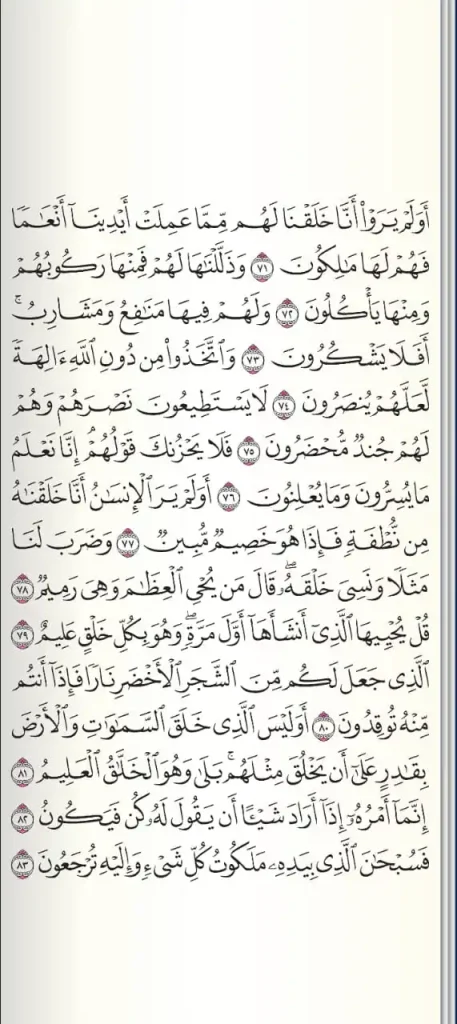 أَوَلَمْ يَرَوْا۟ أَنَّا خَلَقْنَا لَهُم مِّمَّا عَمِلَتْ أَيْدِينَآ أَنْعَٰمًا
فَهُمْ لَهَا مَٰلِكُونَ ٧١ وَذَلَّلْنَٰهَا لَهُمْ فَمِنْهَا رَكُوبُهُمْ
وَمِنْهَا يَأْكُلُونَ ٧٢ وَلَهُمْ فِيهَا مَنَٰفِعُ وَمَشَارِبُ ۚ
أَفَلَا يَشْكُرُونَ ٧٣ وَٱتَّخَذُوا۟ مِن دُونِ ٱللَّهِ ءَالِهَةً
لَّعَلَّهُمْ يُنصَرُونَ ٧٤ لَا يَسْتَطِيعُونَ نَصْرَهُمْ وَهُمْ
لَهُمْ جُندٌ مُّحْضَرُونَ ٧٥ فَلَا يَحْزُنكَ قَوْلُهُمْ ۘ إِنَّا نَعْلَمُ
مَا يُسِرُّونَ وَمَا يُعْلِنُونَ ٧٦ أَوَلَمْ يَرَ ٱلْإِنسَٰنُ أَنَّا خَلَقْنَٰهُ
مِن نُّطْفَةٍ فَإِذَا هُوَ خَصِيمٌ مُّبِينٌ ٧٧ وَضَرَبَ لَنَا
مَثَلًا وَنَسِىَ خَلْقَهُۥ ۖ قَالَ مَن يُحْىِ ٱلْعِظَٰمَ وَهِىَ رَمِيمٌ ٧٨
قُلْ يُحْيِيهَا ٱلَّذِىٓ أَنشَأَهَآ أَوَّلَ مَرَّةٍ ۖ وَهُوَ بِكُلِّ خَلْقٍ عَلِيمٌ ٧٩
ٱلَّذِى جَعَلَ لَكُم مِّنَ ٱلشَّجَرِ ٱلْأَخْضَرِ نَارًا فَإِذَآ أَنتُم
مِّنْهُ تُوقِدُونَ ٨٠ أَوَلَيْسَ ٱلَّذِى خَلَقَ ٱلسَّمَٰوَٰتِ وَٱلْأَرْضَ
بِقَٰدِرٍ عَلَىٰٓ أَن يَخْلُقَ مِثْلَهُم ۚ بَلَىٰ وَهُوَ ٱلْخَلَّٰقُ ٱلْعَلِيمُ ٨١
إِنَّمَآ أَمْرُهُۥٓ إِذَآ أَرَادَ شَيْـًٔا أَن يَقُولَ لَهُۥ كُن فَيَكُونُ ٨٢
فَسُبْحَٰنَ ٱلَّذِى بِيَدِهِۦ مَلَكُوتُ كُلِّ شَىْءٍ وَإِلَيْهِ تُرْجَعُونَ ٨٣